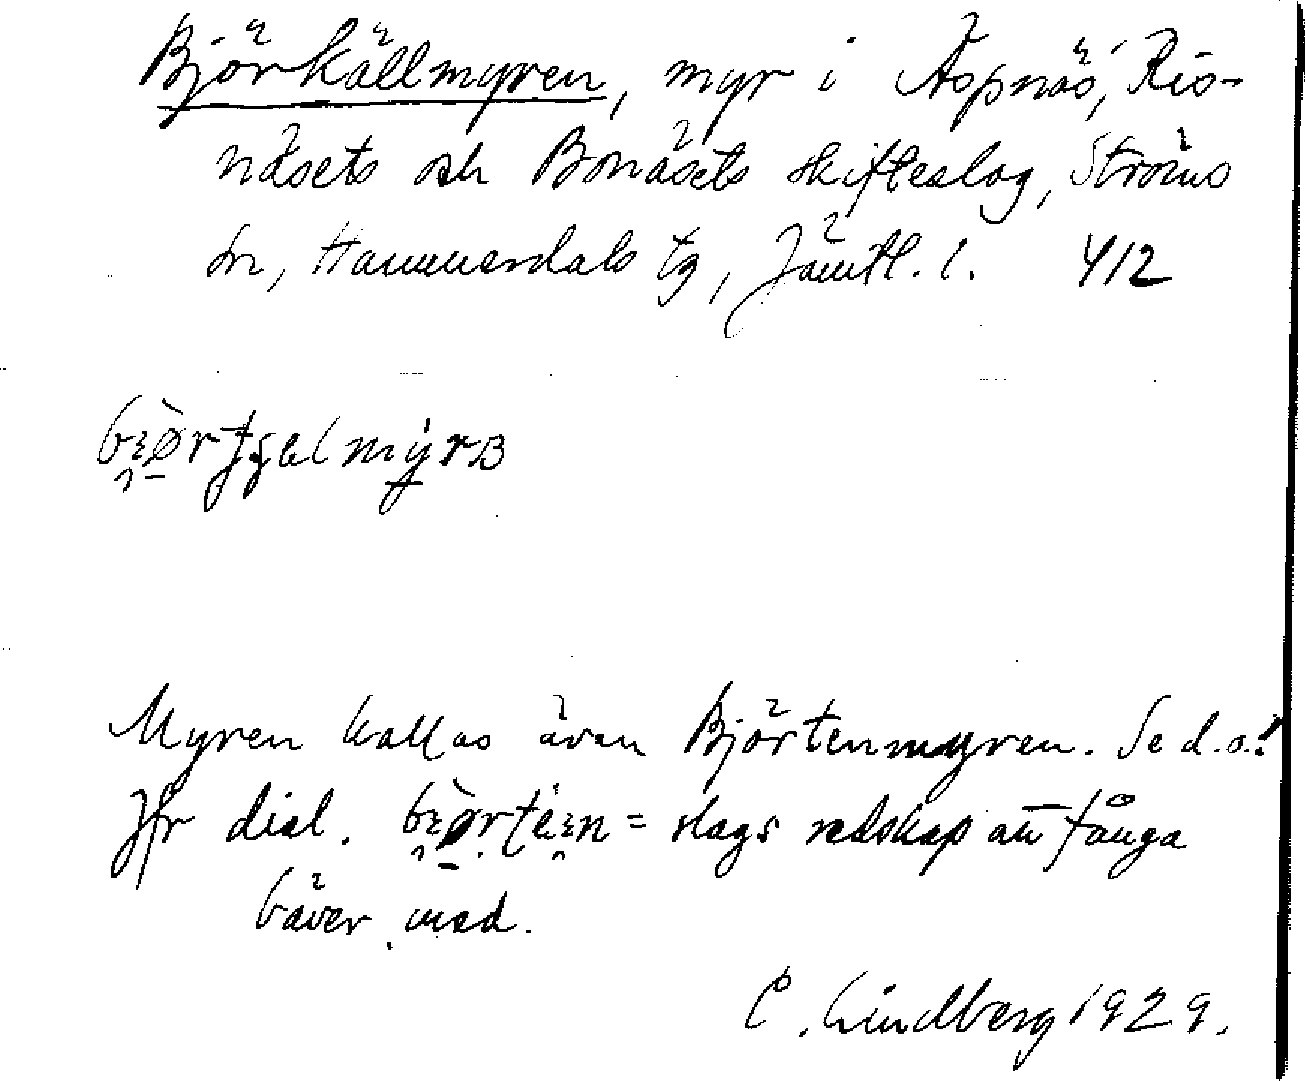 Björkällmyren, myr i Äspnäs, Ris-
näsets och Bonäsets skifteslag, Ströms
sn, Hammerdals tg, Jämtl. l. 412
Myren kallas även Björtenmyren. Se d. o.!
Jfr dial. = slags redskap att fånga
bäver med.
C. Lindberg 1929.